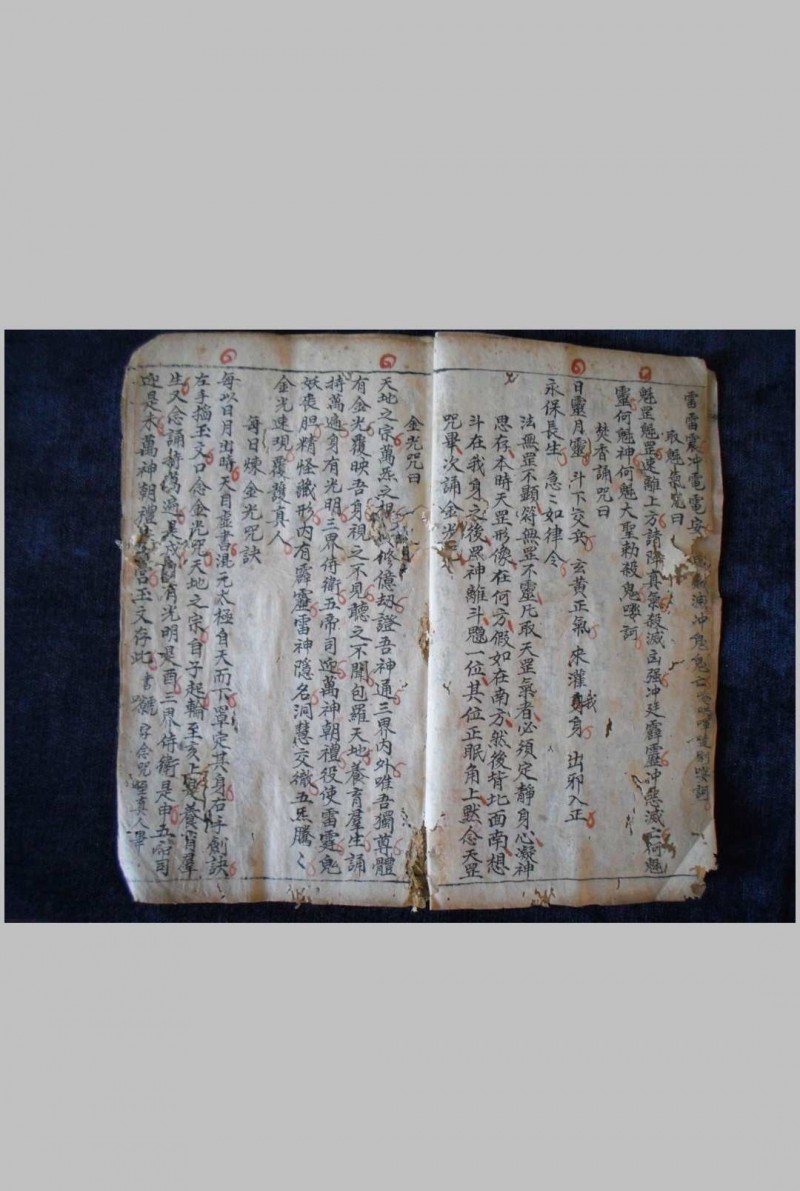 雷雷震冲電電安滅冲鬼鬼亡
取魁罡炁咒曰
魁罡魁罡速離上方請降真氣殺滅凶強冲廷霹靈冲惡滅亡柯魁
靈何魁神何魁大聖勅殺鬼嘍訶
焚香誦咒曰
日靈月靈 斗下交兵 玄黃正氣 來灌我身 出邪入正
永保長生 急〻如律令
法無罡不顯符無罡不靈凡取天罡氣者必須定靜身心凝神
思存本時天罡形像在何方假如在南方然後背北面南想
斗在我身之後炁神離斗颸一位其位正眠角上默念天罡
咒畢次誦金光咒
金光咒曰
天地之宗萬炁之根修億劫證吾神通三界內外唯吾獨尊體
有金光覆映吾身視之不見聽之不聞包羅天地養育羣生誦
持萬遍身有光明三界侍衛五帝司迎萬神朝禮役使雷霆鬼
妖喪胆精怪藏形內有霹靂雷神隱名洞慧交徹五炁騰〻
金光速現覆護真人
每日煉金光咒訣
每以日月出時天目虛書混元太極自天而下罩定其身右手劍訣
左手掐玉文口念金光咒天地之宗自子起輪至亥上是養育羣
生又念誦持萬遍是戌身有光明是酉三界侍衛是申五帝司
迎是未萬神朝禮玉文存此書字念咒至真人畢